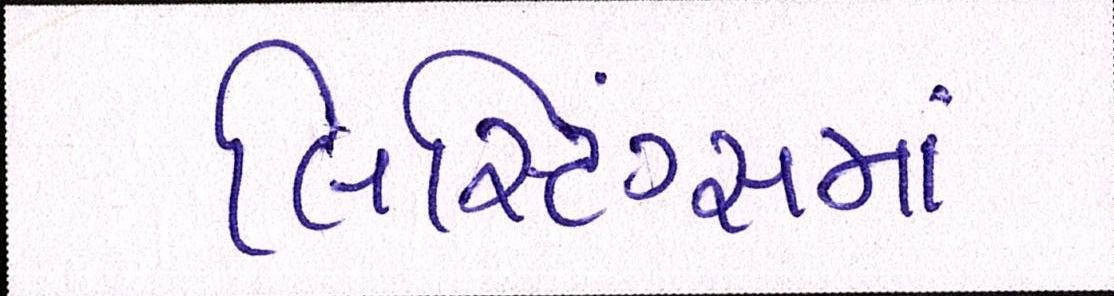 લિસ્ટિંગ્સમાં